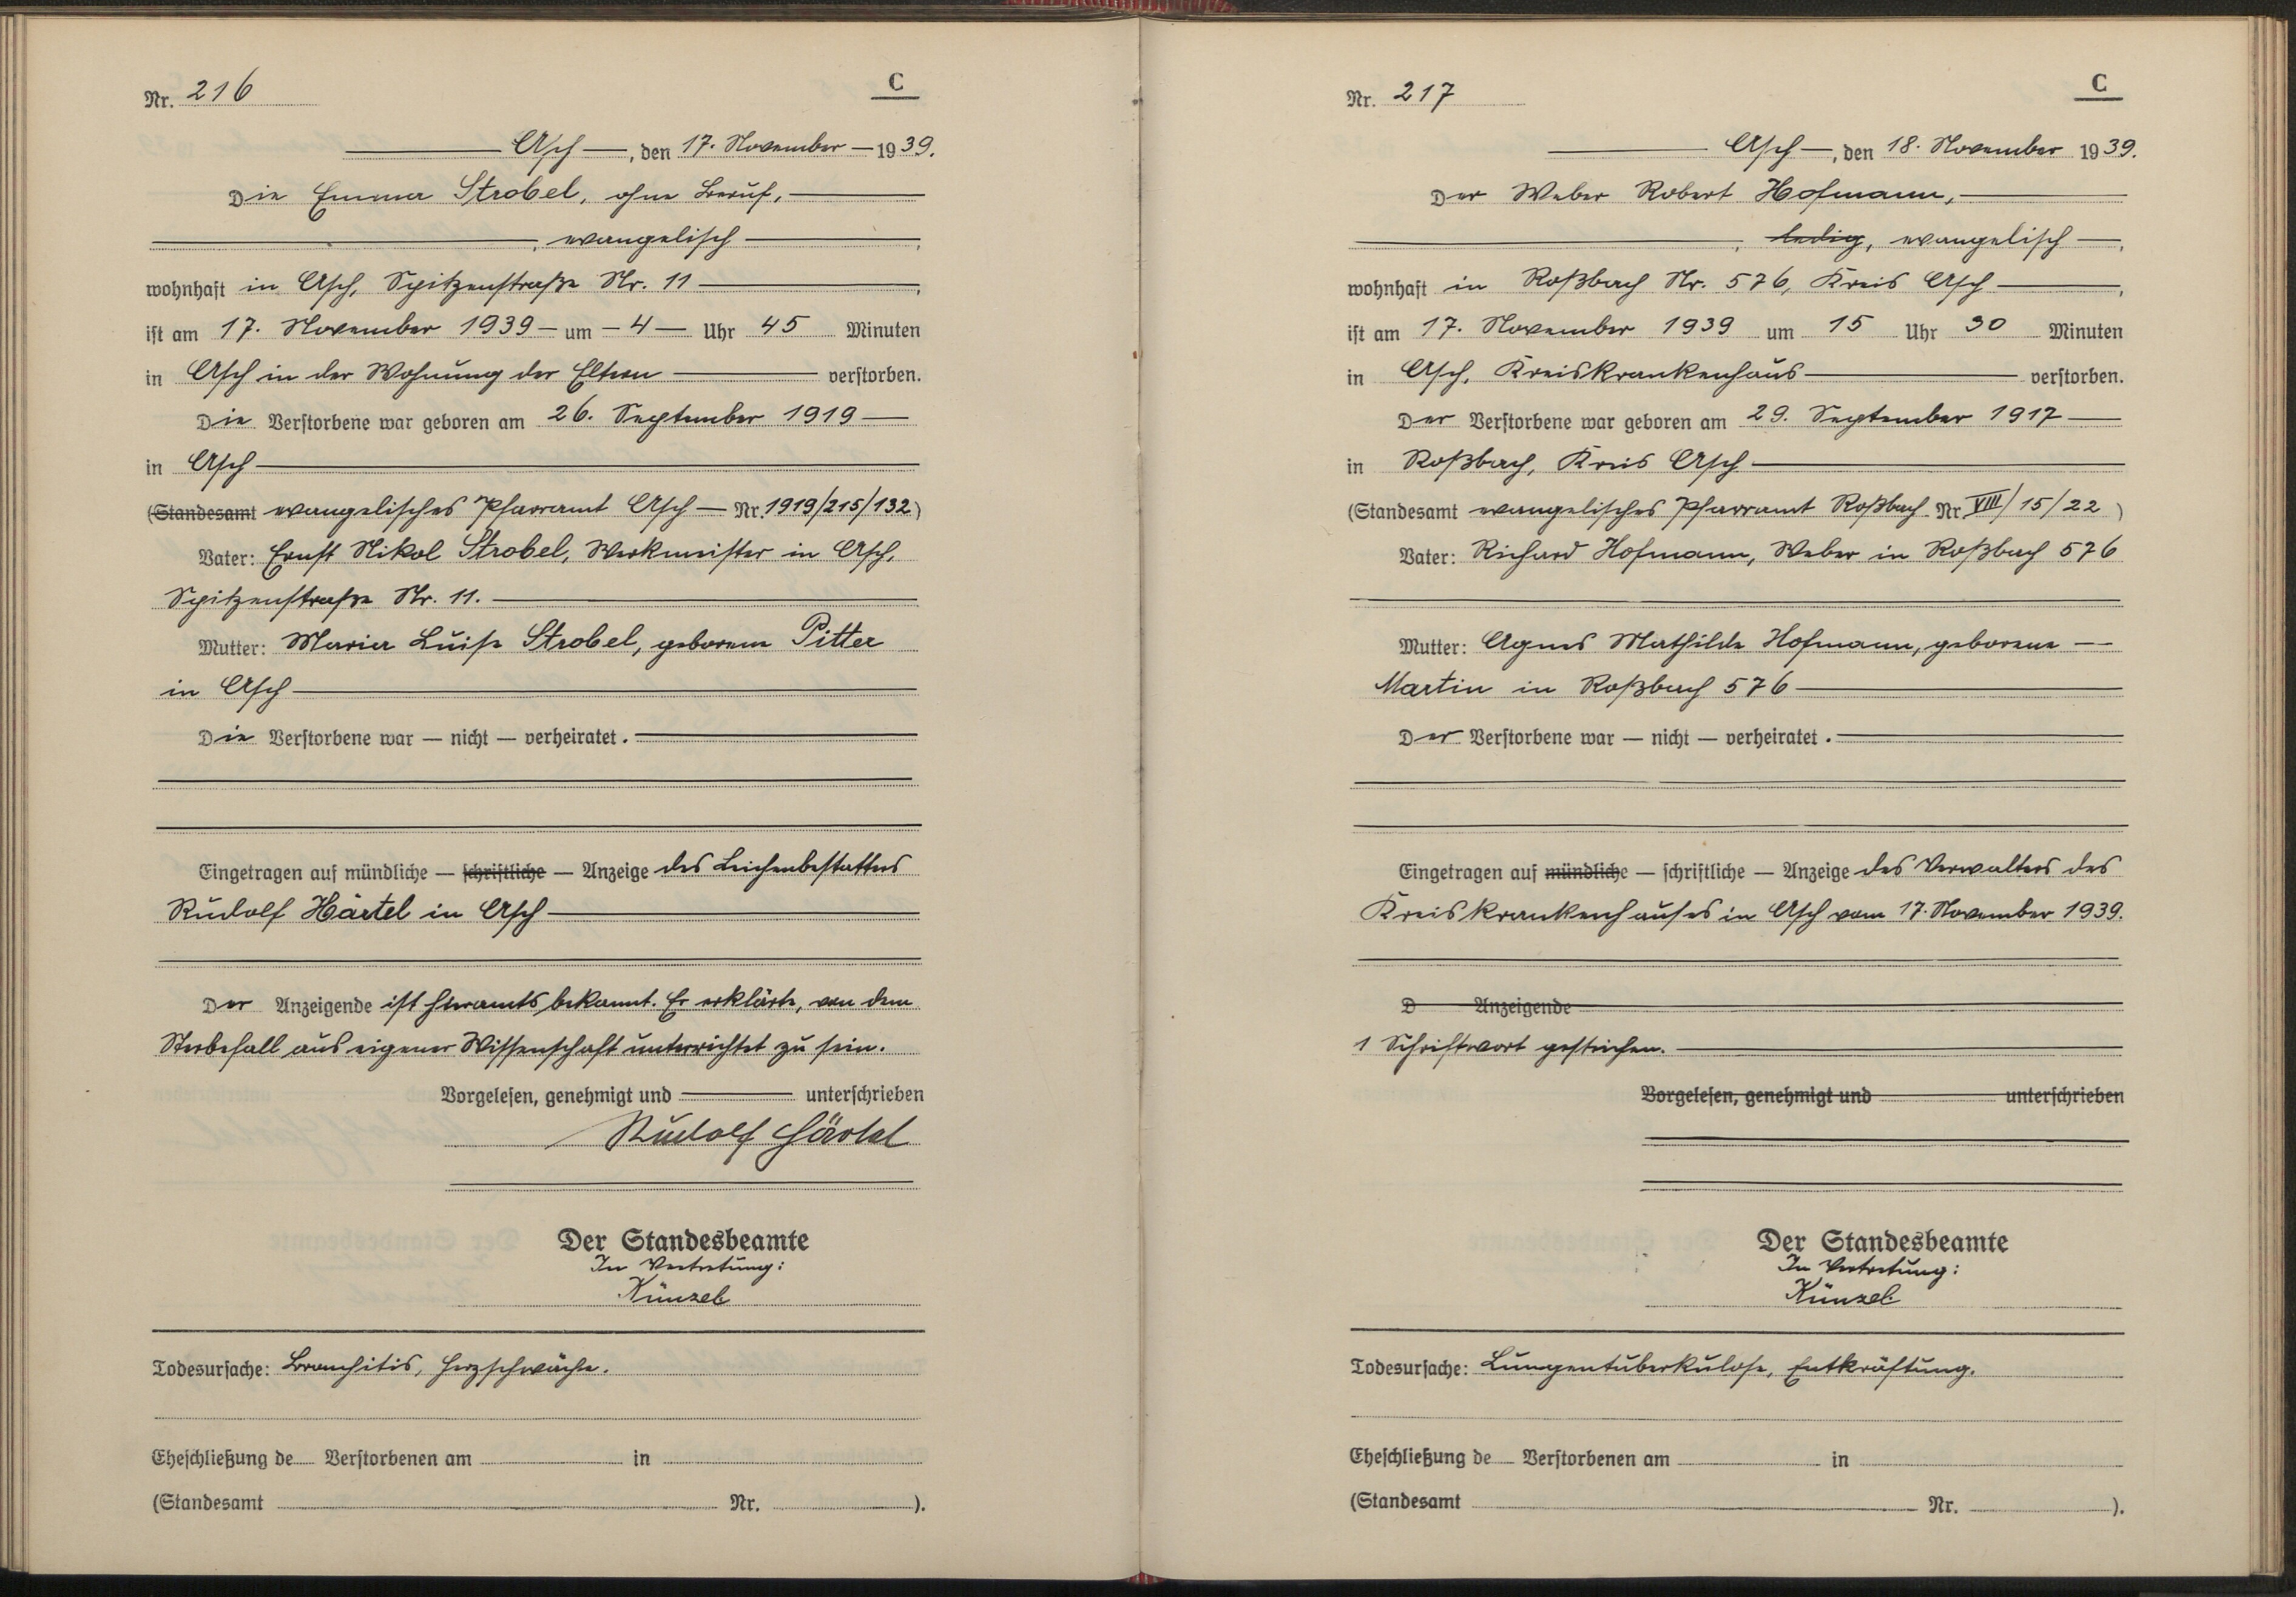 Nr. 216
C
Asch, den 17. November 1939.
Die Emma Strobel, ohne Beruf,
, evangelisch ,
wohnhaft in Asch, Spitzenstraße Nr. 11 ,
ist am 17. November 1939 um 4 Uhr 45 Minuten
in Asch in der Wohnung der Eltern verstorben.
Die Verstorbene war geboren am 26. September 1919
in Asch
(Standesamt evangelisches Pfarramt Asch Nr. 1919/215/132)
Vater: Ernst Nikol Strobel, Werkmeister in Asch,
Spitzenstraße Nr. 11.
Mutter: Maria Luise Strobel, geborene Pitter
in Asch
Die Verstorbene war — nicht — verheiratet.
Eingetragen auf mündliche — schriftliche — Anzeige des Leichenbestatters
Rudolf Härtel in Asch
Der Anzeigende ist hieramts bekannt. Er erklärte, von dem
Sterbefall aus eigener Wissenschaft unterrichtet zu sein.
Vorgelesen, genehmigt und unterschrieben
Rudolf Härtel
Der Standesbeamte
In Vertretung:
Künzel
Todesursache: Bronchitis, Herzschwäche.
Eheschließung de Verstorbenen am in
(Standesamt Nr. ).
Nr. 217
C
Asch, den 18. November 1939.
Der Weber Robert Hofmann,
, ledig, evangelisch ,
wohnhaft in Roßbach Nr. 576, Kreis Asch ,
ist am 17. November 1939 um 15 Uhr 30 Minuten
in Asch, Kreiskrankenhaus verstorben.
Der Verstorbene war geboren am 29. September 1917
in Roßbach, Kreis Asch
(Standesamt evangelisches Pfarramt Roßbach Nr VIII/15/22 )
Vater: Richard Hofmann, Weber in Roßbach 576
Mutter: Agnes Mathilde Hofmann, geborene —
Martin in Roßbach 576
Der Verstorbene war — nicht — verheiratet.
Eingetragen auf mündliche — schriftliche — Anzeige des Verwalters des
Kreiskrankenhauses in Asch vom 17. November 1939.
D Anzeigende
1 Schriftwort gestrichen.
Vorgelesen, genehmigt und unterschrieben
Der Standesbeamte
In Vertretung:
Künzel
Todesursache: Lungentuberkulose, Entkräftung.
Eheschließung de Verstorbenen am in
(Standesamt Nr. ).